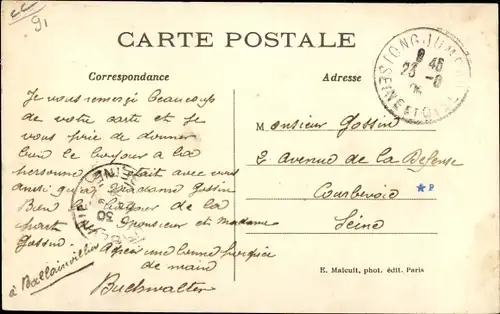 91
CARTE POSTALE
Correspondance
Adresse
Je vous remerci beaucoup
de votre carte et Je
vous prie de donner
bien le bonjour a la
personne était avec vous
ainsi qu'a Madame Gossin
Bien le bonjour de la
part Monsieur et Madame
Gossin.
Apres une bonne
de main
Buchwalter
à Ballainvillier
LONGJUMEAU
9 45
23 -8
SEINE ET OISE
30
Monsieur Gossin
2 avenue de la Defense
Courbevoie
Seine
E. Malcuit, phot. édit. Paris